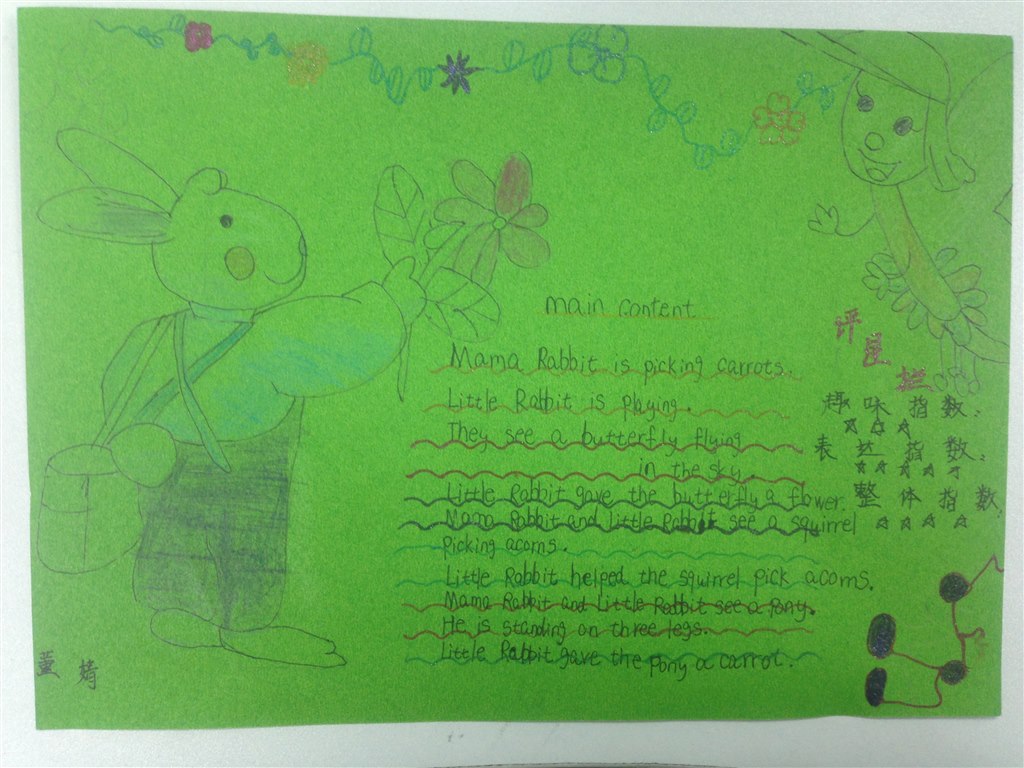 main content
Mama Rabbit is picking carrots.
Little Rabbit is playing.
They see a butterfly flying
in the sky.
Little Rabbit gave the butterfly a flower.
Mama Rabbit and Little Rabbit see a squirrel
Picking acorns.
Little Rabbit helped the squirrel pick acorns.
Mama Rabbit and Little Rabbit see a Pony.
He is standing on three legs.
Little Rabbit gave the pony a carrot.
评星栏
趣味指数:
☆☆☆
表达指数:
☆☆☆☆☆
整体指数
☆☆☆☆
董婧